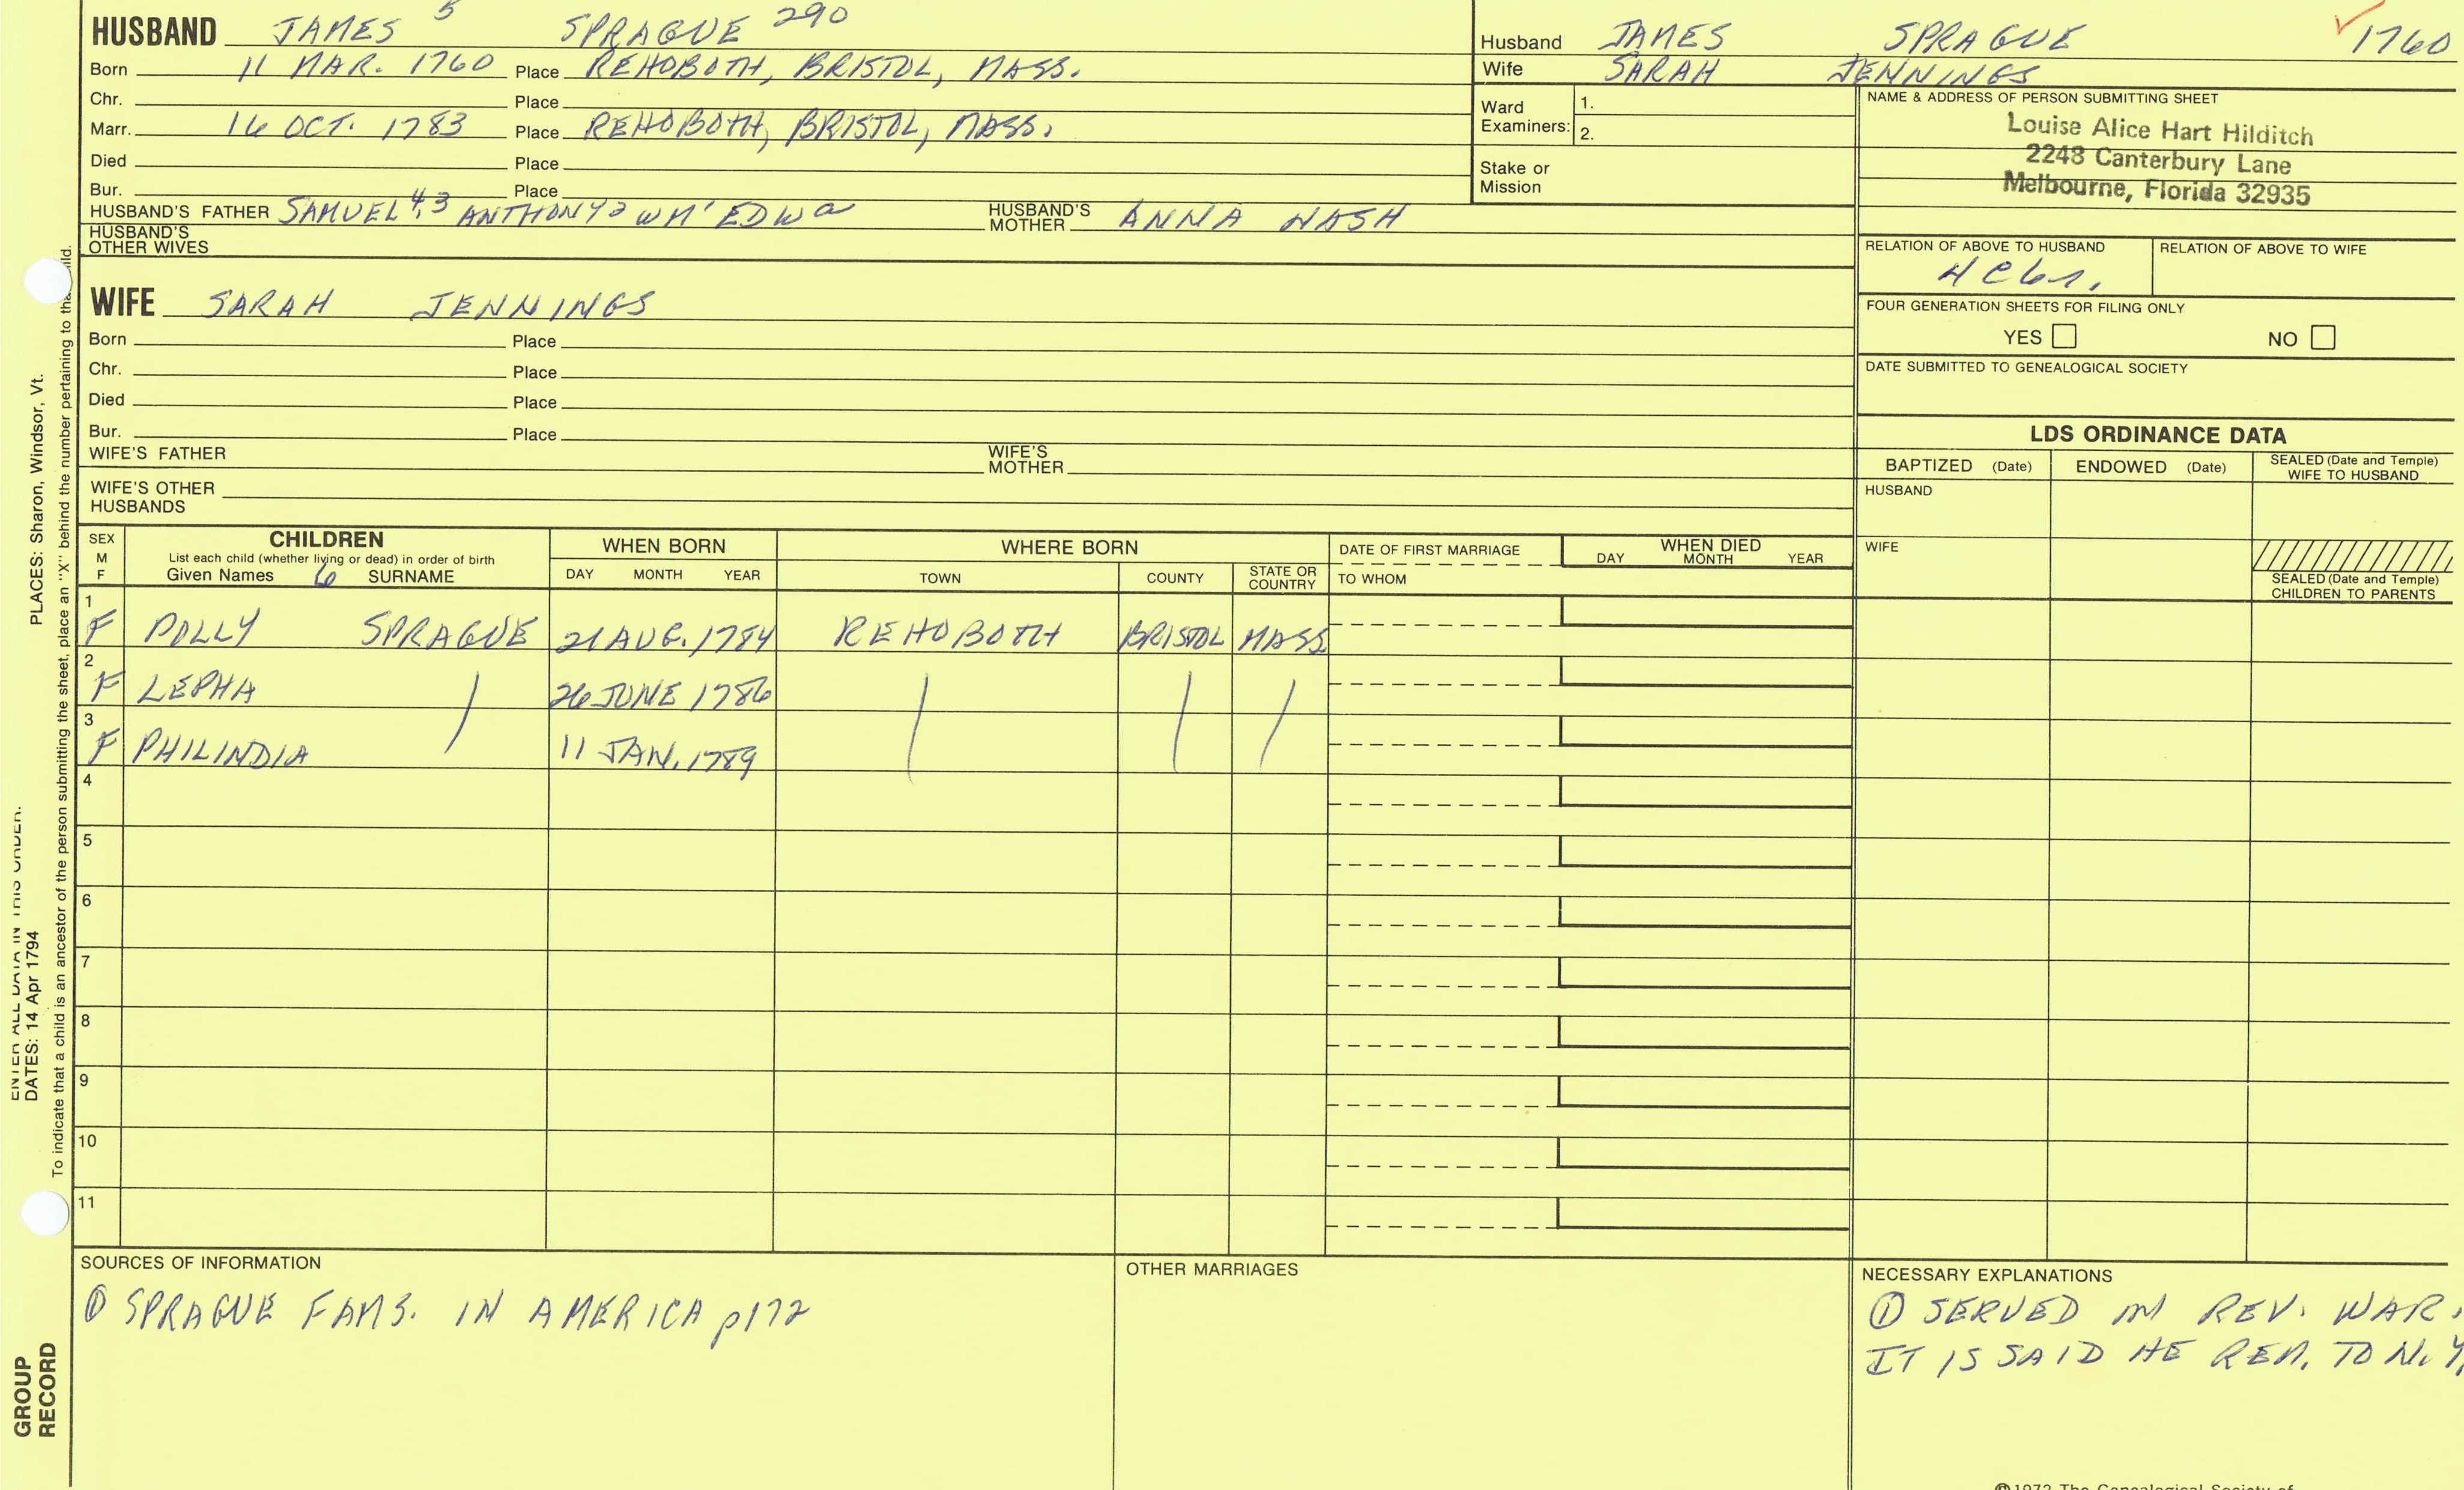 HUSBAND JAMES 5 SPRAGUE 290
Born 11 MAR. 1760 Place REHOBOTH, BRISTOL, MASS.
Chr. Place
Marr. 16 OCT. 1783 Place REHOBOTH, BRISTOL, MASS.
Died Place
Bur. Place
HUSBAND'S FATHER SAMUEL 4, 3 ANTHONY 2 WM 1 EDW a HUSBAND'S MOTHER ANNA NASH
HUSBAND'S OTHER WIVES
WIFE SARAH JENNINGS
Born Place
Chr. Place
Died Place
Bur. Place
WIFE'S FATHER WIFE'S MOTHER
WIFE'S OTHER HUSBANDS
Husband JAMES SPRAGUE 1760
Wife SARAH JENNINGS
Ward Examiners: 1.
2.
Stake or Mission
NAME & ADDRESS OF PERSON SUBMITTING SHEET
Louise Alice Hart Hilditch
2248 Canterbury Lane
Melbourne, Florida 32935
RELATION OF ABOVE TO HUSBAND RELATION OF ABOVE TO WIFE
FOUR GENERATION SHEETS FOR FILING ONLY
YES NO
DATE SUBMITTED TO GENEALOGICAL SOCIETY
LDS ORDINANCE DATA
BAPTIZED (Date) ENDOWED (Date) SEALED (Date and Temple) WIFE TO HUSBAND
HUSBAND
WIFE
SEALED (Date and Temple) CHILDREN TO PARENTS
SEX M F CHILDREN WHEN BORN WHERE BORN DATE OF FIRST MARRIAGE WHEN DIED
List each child (whether living or dead) in order of birth
Given Names 6 SURNAME DAY MONTH YEAR TOWN COUNTY STATE OR COUNTRY TO WHOM DAY MONTH YEAR
1 F POLLY SPRAGUE 21 AUG. 1784 REHOBOTH BRISTOL MASS
2 F LEPHA 26 JUNE 1786
3 F PHILINDIA 11 JAN. 1789
4
5
6
7
8
9
10
11
SOURCES OF INFORMATION
① SPRAGUE FAMS. IN AMERICA p172
OTHER MARRIAGES
NECESSARY EXPLANATIONS
① SERVED IN REV. WAR.
IT IS SAID HE REM. TO N.Y.
©1972 The Genealogical Society of
ENTER ALL DATA IN THIS ORDER:
DATES: 14 Apr 1794
PLACES: Sharon, Windsor, Vt.
To indicate that a child is an ancestor of the person submitting the sheet, place an "X" behind the number pertaining to that child.
GROUP
RECORD